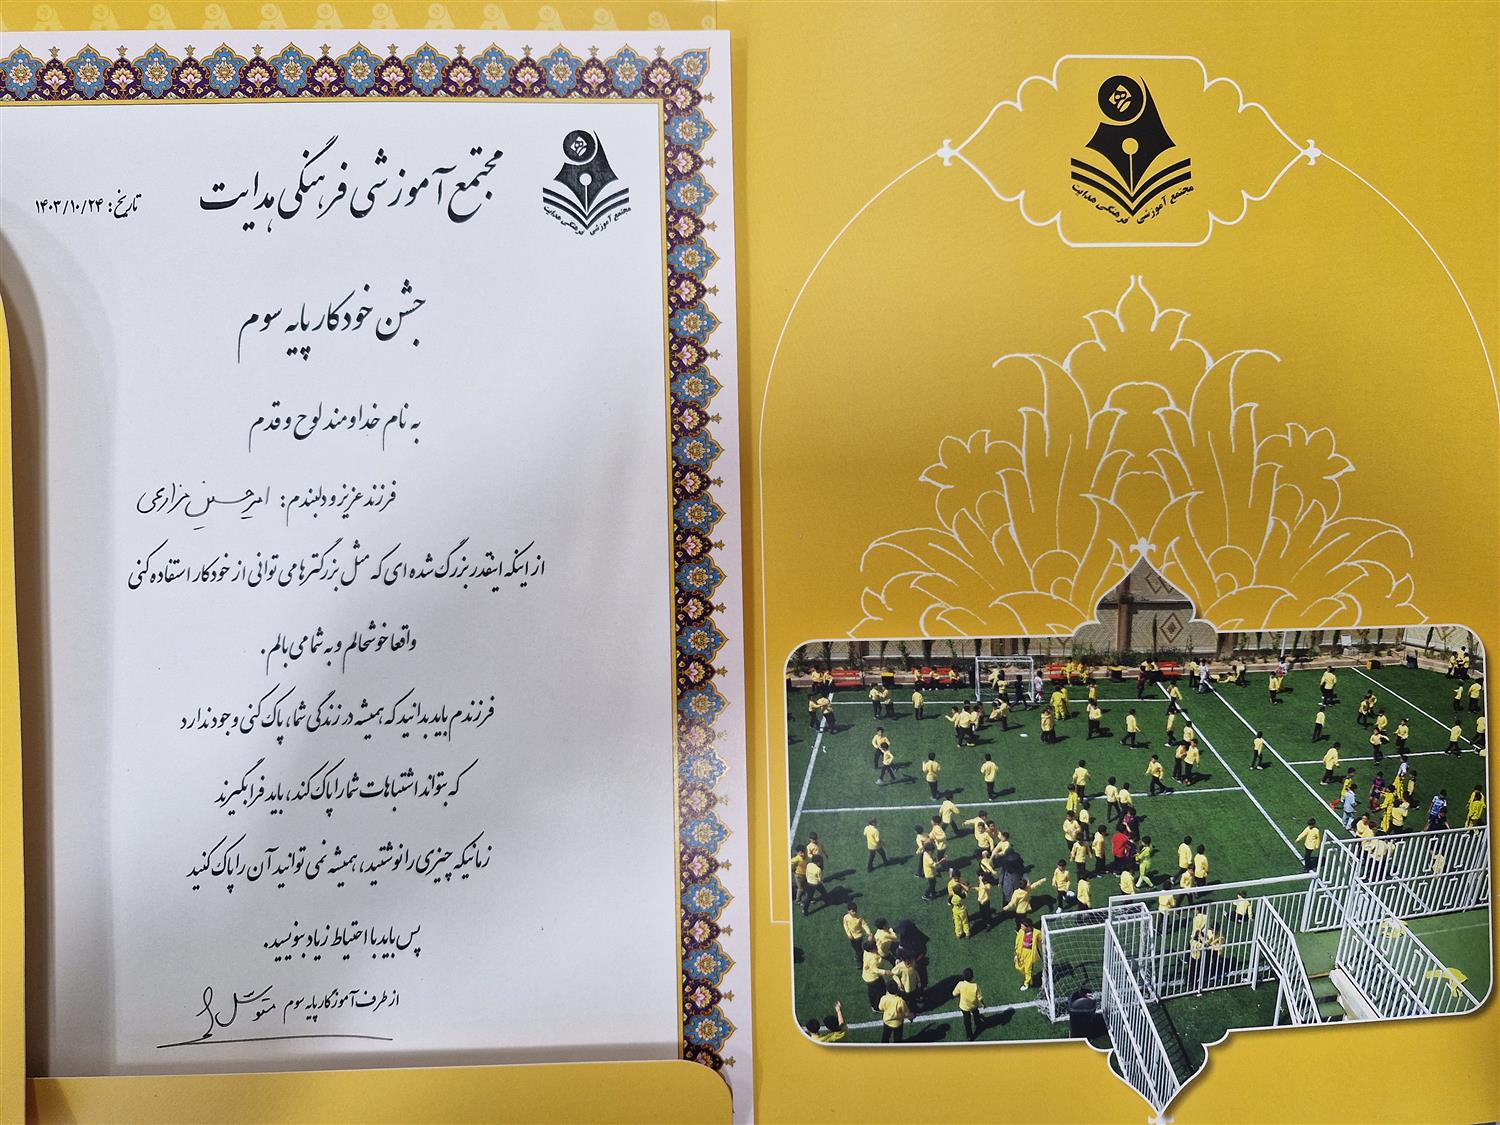 مجتمع آموزشی فرهنگی هدایت
تاریخ: ۱۴۰۳/۱۰/۲۴
مجتمع آموزشی فرهنگی هدایت
جشن خودکار پایه سوم
به نام خداوند لوح و قدم
فرزند عزیز و دلبندم: امیرحسین زارعی
از اینکه اینقدر بزرگ شده ای که مثل بزرگترها می توانی از خودکار استفاده کنی
واقعا خوشحالم و به شما می بالم.
فرزندم باید بدانید که همیشه در زندگی شما، پاک کنی وجود ندارد
که بتواند اشتباهات شما را پاک کند، باید فرا بگیرند
زمانیکه چیزی را نوشتید، همیشه نمی توانید آن را پاک کنید
پس باید با احتیاط زیاد بنویسید.
از طرف آموزگار پایه سوم متوسل
مجتمع آموزشی فرهنگی هدایت